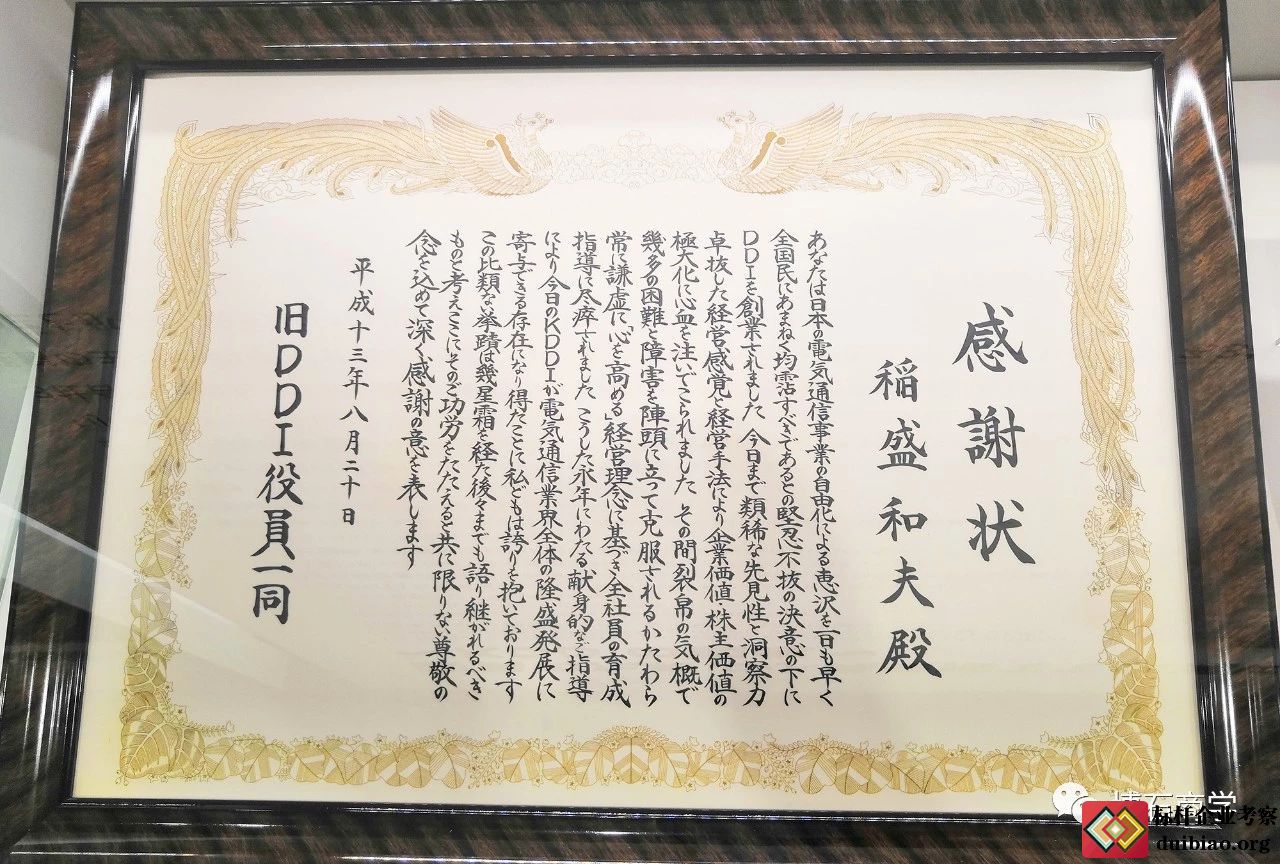 感謝状
稲盛和夫殿
あなたは日本の電気通信事業の自由化による恵沢を一日も早く
全国民にあまねく均霑すべきであるとの堅忍不抜の決意の下に
DDIを創業されました 今日まで類稀な先見性と洞察力
卓抜した経営感覚と経営手法により企業価値 株主価値の
極大化に心血を注いでこられました その間裂帛の気概で
幾多の困難と障害を陣頭に立って克服されるかたわら
常に謙虚に「心を高める」経営理念に基づき全社員の育成
指導に尽瘁されました こうした永年にわたる献身的なご指導
により今日のKDDIが電気通信業界全体の隆盛発展に
寄与できる存在になり得たことに私どもは誇りを抱いております
この比類なき挙蹟は幾星霜を経た後々までも語り継がれるべき
ものと考えここにそのご功労をたたえると共に限りない尊敬の
念を込めて深く感謝の意を表します
平成十三年八月二十日
旧DDI役員一同
标杆企业考察
duibiao.org